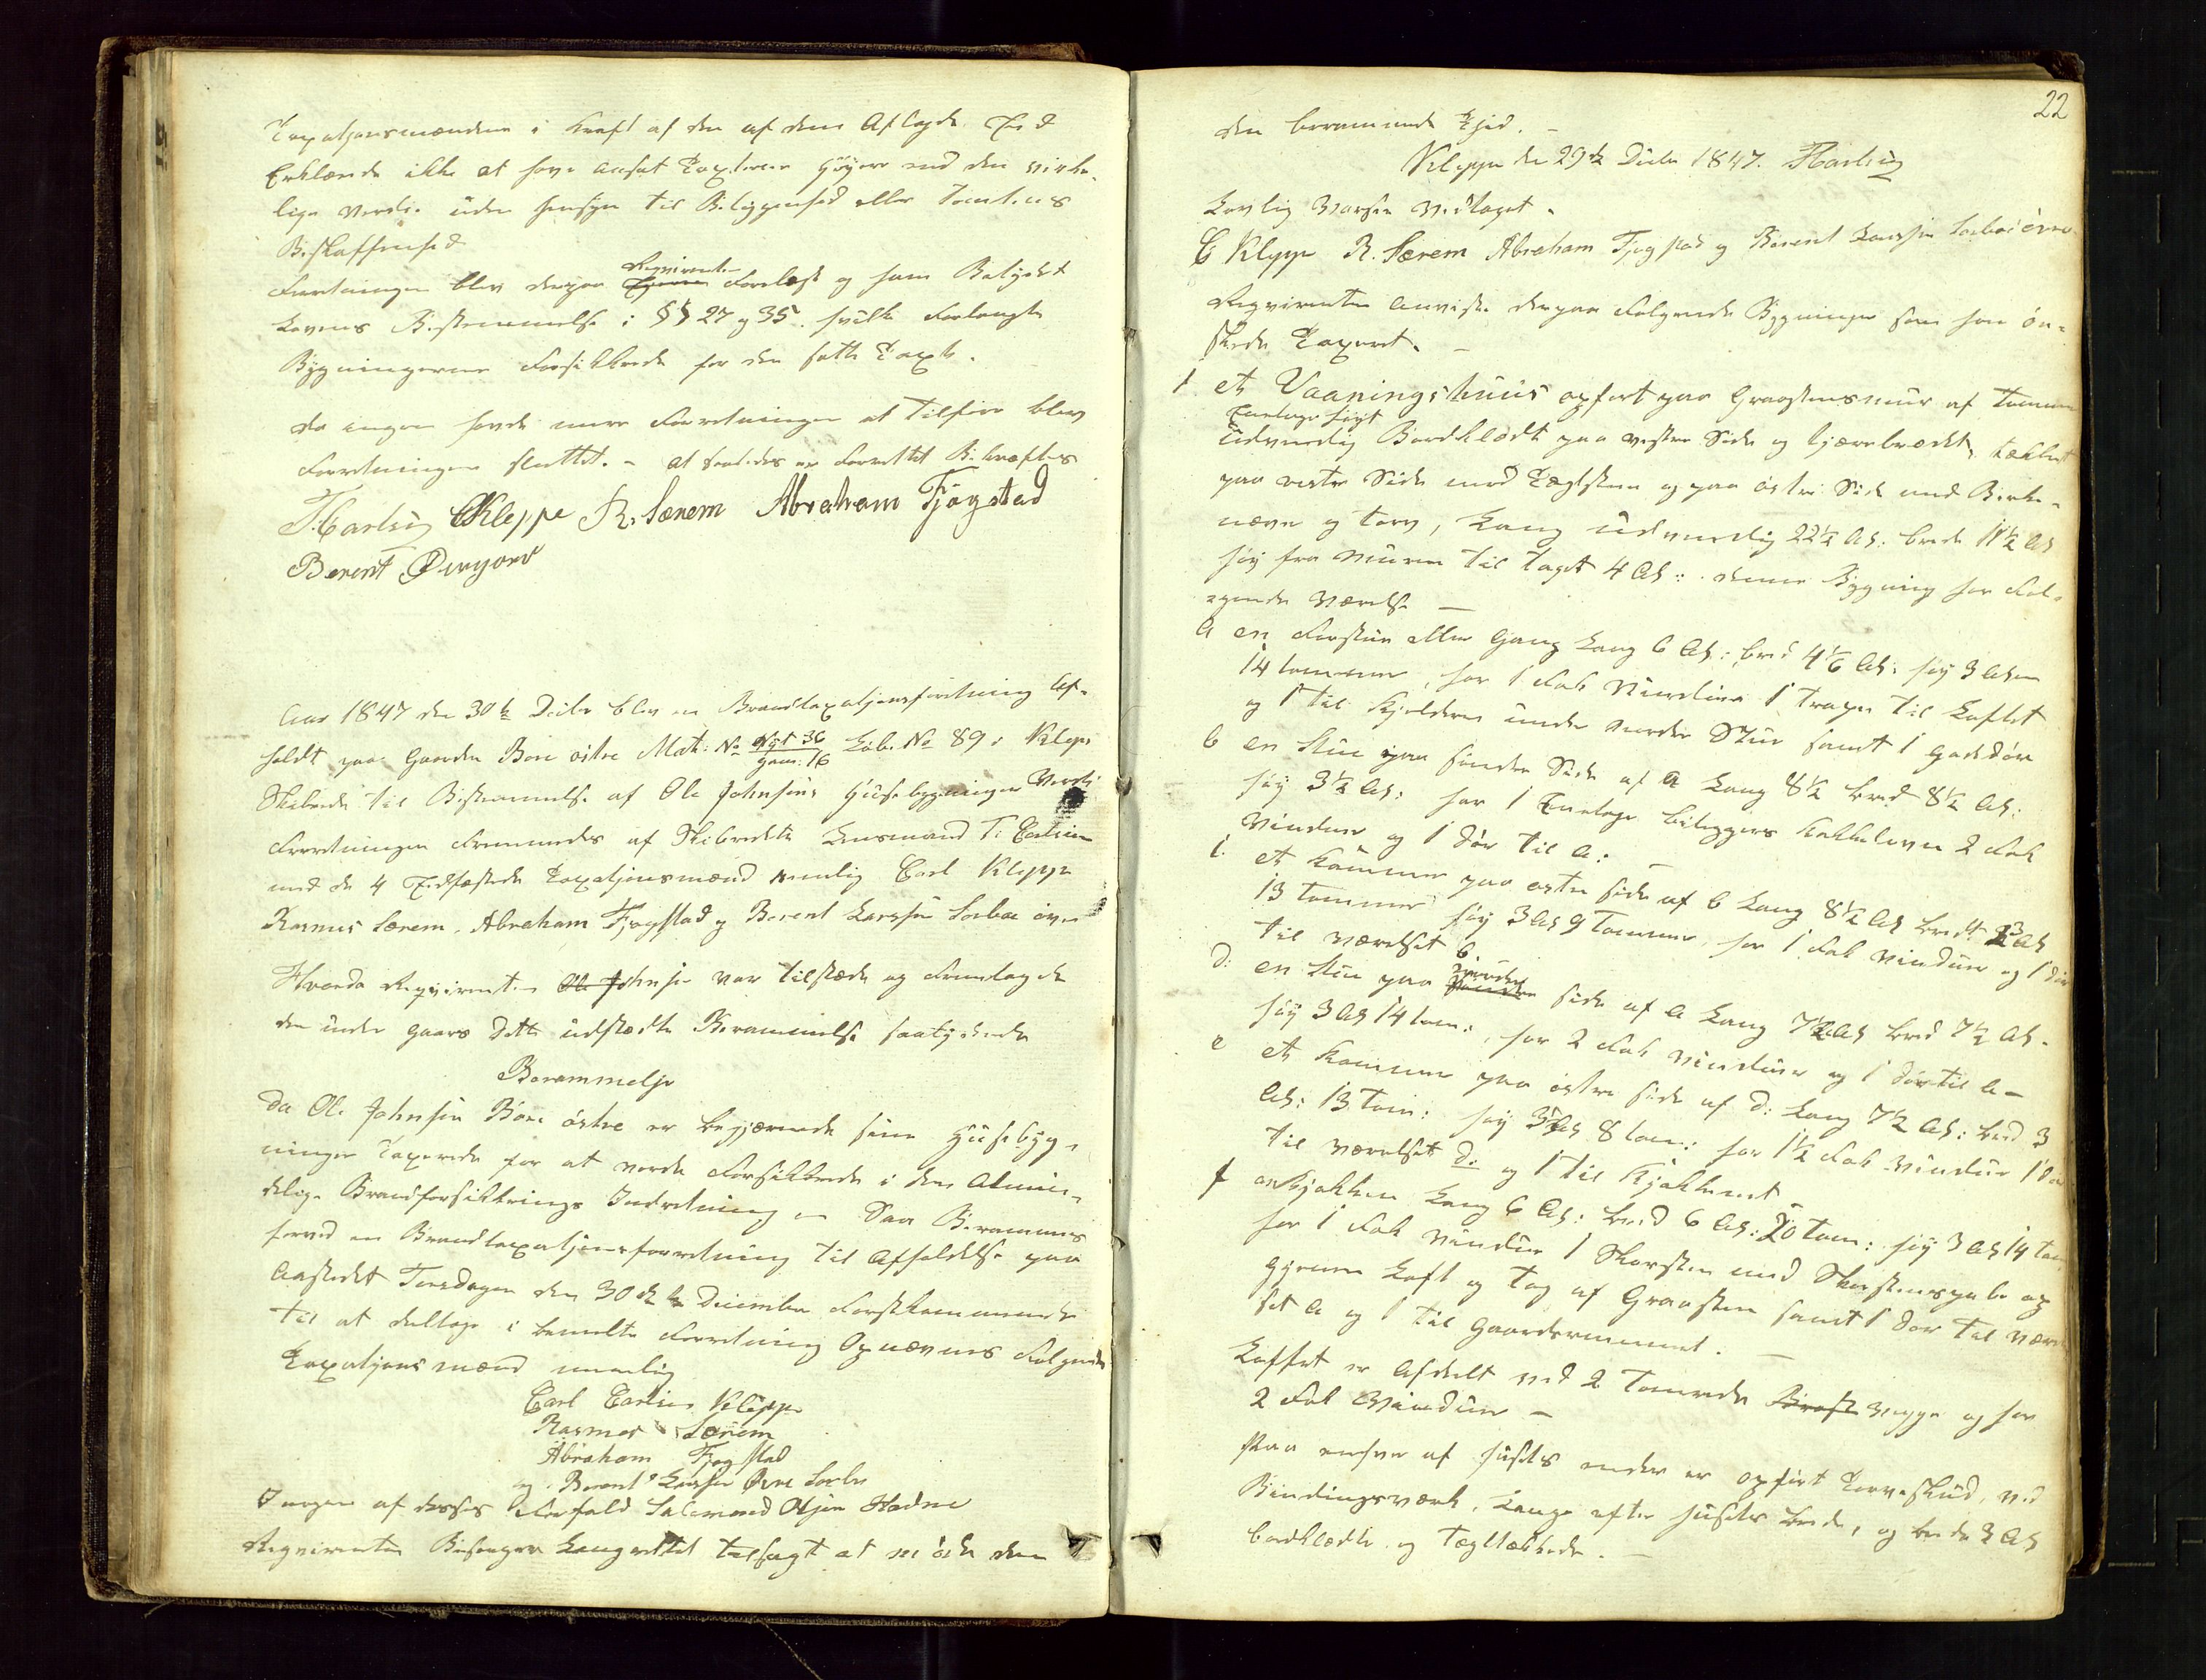 Taxatjonsmændene i Kraft af den af dem Aflagde Eed
Erklærede ikke at have ansat Taxterne høyere end den virke-
lige Verdie uden Hensyn til Beliggenhed eller Tomtens
Beskaffenhed
Reqvirenten
Forretningen blev derpaa Forelæst og ham Betydet
Lovens Bestemmelse i §§ 27 og 35. hvilke Forlangte
Bygningerne Forsikkrede for den satte Taxt.
da ingen havde mere Forretningen at Tilføre blev
Forretningen sluttet. - at saaledes er Forrettet Bekræftes
T. Carlsen CKleppe R. Særem Abraham Fjogstad
Berent
Aar 1847 den 30te Decbr blev en Brandtaxatjonsforretning Af-
holdt paa Gaarden Bore østre Mat: No Nyt 36 Løb. No 89 i Klep
gam: 16
Skibrede til Bestemmelse af Ole Johnsens Huusebygninger Verdi
Forretningen Fremmedes af Skibredets Lensmand T. Carlsen
med de 4 Eedfæstede Taxatjonsmænd nemlig Carl Kleppe
Rasmus Særem, Abraham Fjogstad og Berent Larssen Sorboe øvre
Hvorda Reqvirenten Ole Johnsen var tilstæde og Fremlagde
den under Gaars Dato udstædte Berammelse saalydende
Berammelse
Da Ole Johnsen Bore østre er begjærende sine Huusebyg-
ninger Taxerede for at vorde Forsikkrede i den Almin-
delige Brandforsikkrings Indretning Saa Berammes
herved en Brandtaxatjonsforretning til Afholdelse paa
Aastedet Torsdagen den 30de December Førstkommende
Til at deltage i bemelte Forretning Opnævnes Følgende
Taxatjonsmænd nemlig
Carl Carlsen Kleppe
Rasmus Særem
Abraham Fjogstad
og Berent Larssen Øvre Sorbo
I nogen af disses Forfald Salemond Olsen Hodne
Reqvirenten Besørger Laugrettet tilsagt at møde den
22
den berammede Tid. -
Kleppe den 29de Decbr 1847. TCarlsen
Lovlig Varsel Vedtaget.
C Kleppe R. Særem Abraham Fjogstad og Berent Larssen Sorboe øvre
Reqvirenten anviste derpaa Følgende Bygninger som han øn-
skede Taxeret. -
1 et Vaaningshuus opført paa Graasteensmuur af Tømmer
Eenetage høyt
Udvendig Bordklædt paa vestre Side og tjærebrædet, tækket
paa vestre Side med Tægtsteen og paa østre Side med Birke-
næver og torv, Lang udvendig 22½ Al: brede 11½ Al
høy fra Muren til Taget 4 Al: denne Bygning har Føl-
gende Værelse -
a en Forstue eller Gang Lang 6 Al: bred 4½ Al: høy 3 Alen
14 tommer, har 1 Fak Vinduer 1 Trappe til Loftet
og 1 til Kjelderen under nordre Stue samt 1 Gadedør
b en Stue paa søndre Side af a Lang 8½ bred 8½ Al:
høy 3½ Al: har 1 Eenetage Bileggers Kakkelovn 2 Fak
Vinduer og 1 Dør til a: -
c. et Kammer paa østre side af b Lang 8½ Al bredt 3 Al
13 Tommer høy 3 Al 9 Tommer, har 1 Fak Vinduer og 1 dør
til Værelset b.
d: en Stue paa nordre side af a Lang 7½ Al bred 7½ Al.
høy 3 Al 14 tom: har 2 Fak Vinduer og 1 dør til a -
e et Kammer paa østre side af d: Lang 7½ Al: bred 3
Al: 13 Tom: høy 3 Al 8 tom: har 1½ Fak Vinduer 1 dør
til Værelset d: og 1 til Kjøkkenet -
f et Kjøkken Lang 6 Al: bred 6 Al: 20 tom: høy 3 Al 14 tom
har 1 Fak Vinduer 1 Skorsteen med Skorsteenspibe op
gjennem Loft og tag af Graasteen samt 1 Dør til Være
set a og 1 til Gaardsrummet. -
Loftet er Afdeelt ved 2 Tømrede Vægge og har
2 Fak Vinduer -
Paa enhver af husets ender er opført Torveskuud, ved
Bindingsværk, Lange efter husets brede, og brede 3 Al
bordklædte og Tægltækkede. -